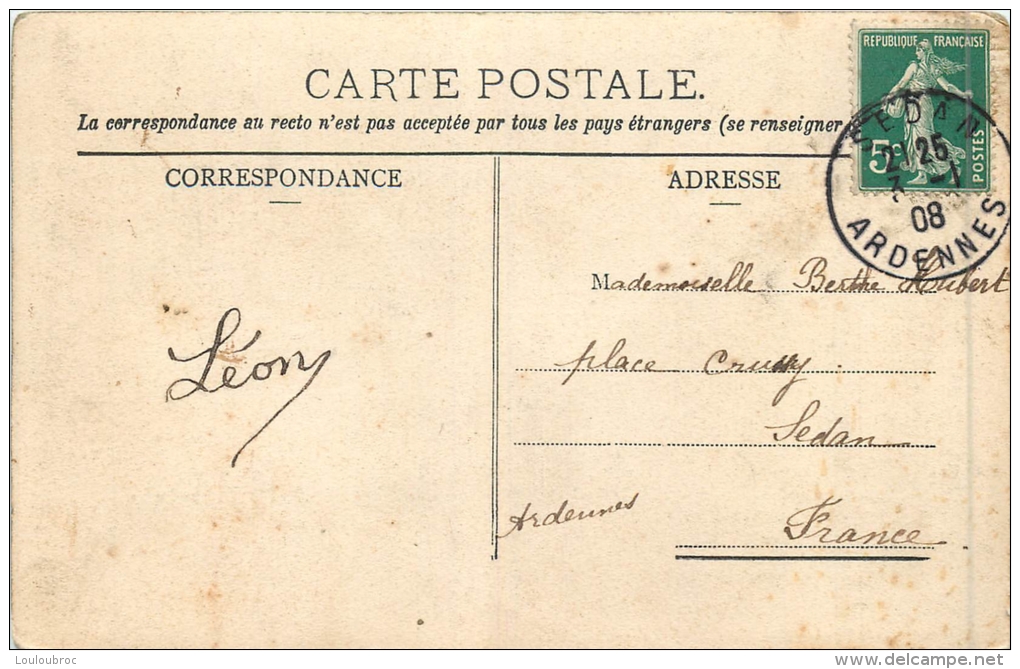 CARTE POSTALE.
La correspondance au recto n'est pas acceptée par tous les pays étrangers (se renseigner
CORRESPONDANCE
ADRESSE
REPUBLIQUE FRANÇAISE
5
POSTES
SEDAN
21 25
3 -1
08
ARDENNES
Mademoiselle Berthe Hubert
place Crussy
Sedan
Ardennes
France
Léon
Louloubroc
www.delcampe.net